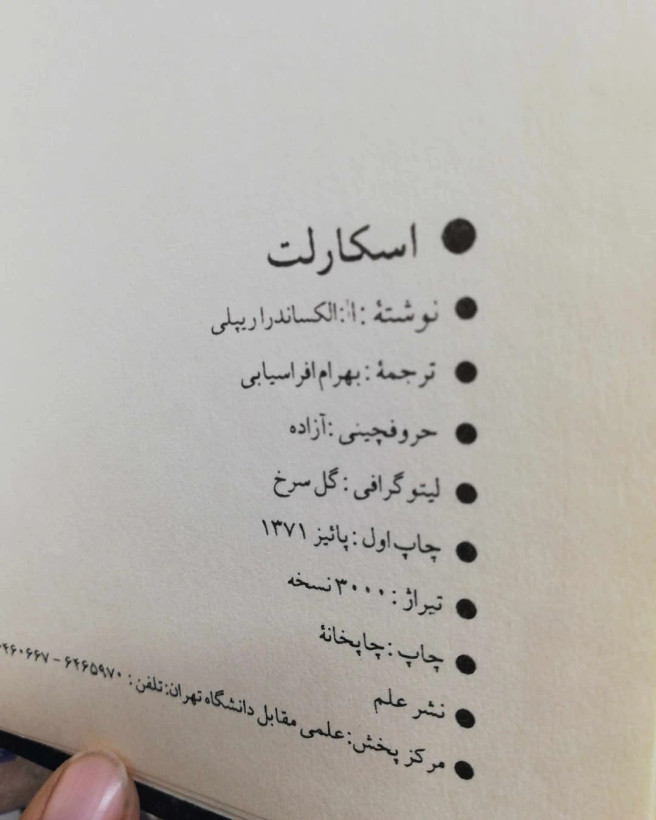 اسکارلت
نوشتهٔ :ا:الکساندرا ریپلی
ترجمهٔ : بهرام افراسیابی
حروفچینی :آزاده
لیتوگرافی : گل سرخ
چاپ اول : پائیز ۱۳۷۱
تیراژ : ۳۰۰۰ نسخه
چاپ : چاپخانهٔ
نشر علم
مرکز پخش: علمی مقابل دانشگاه تهران: تلفن : ۶۴۶۵۹۷۰ –